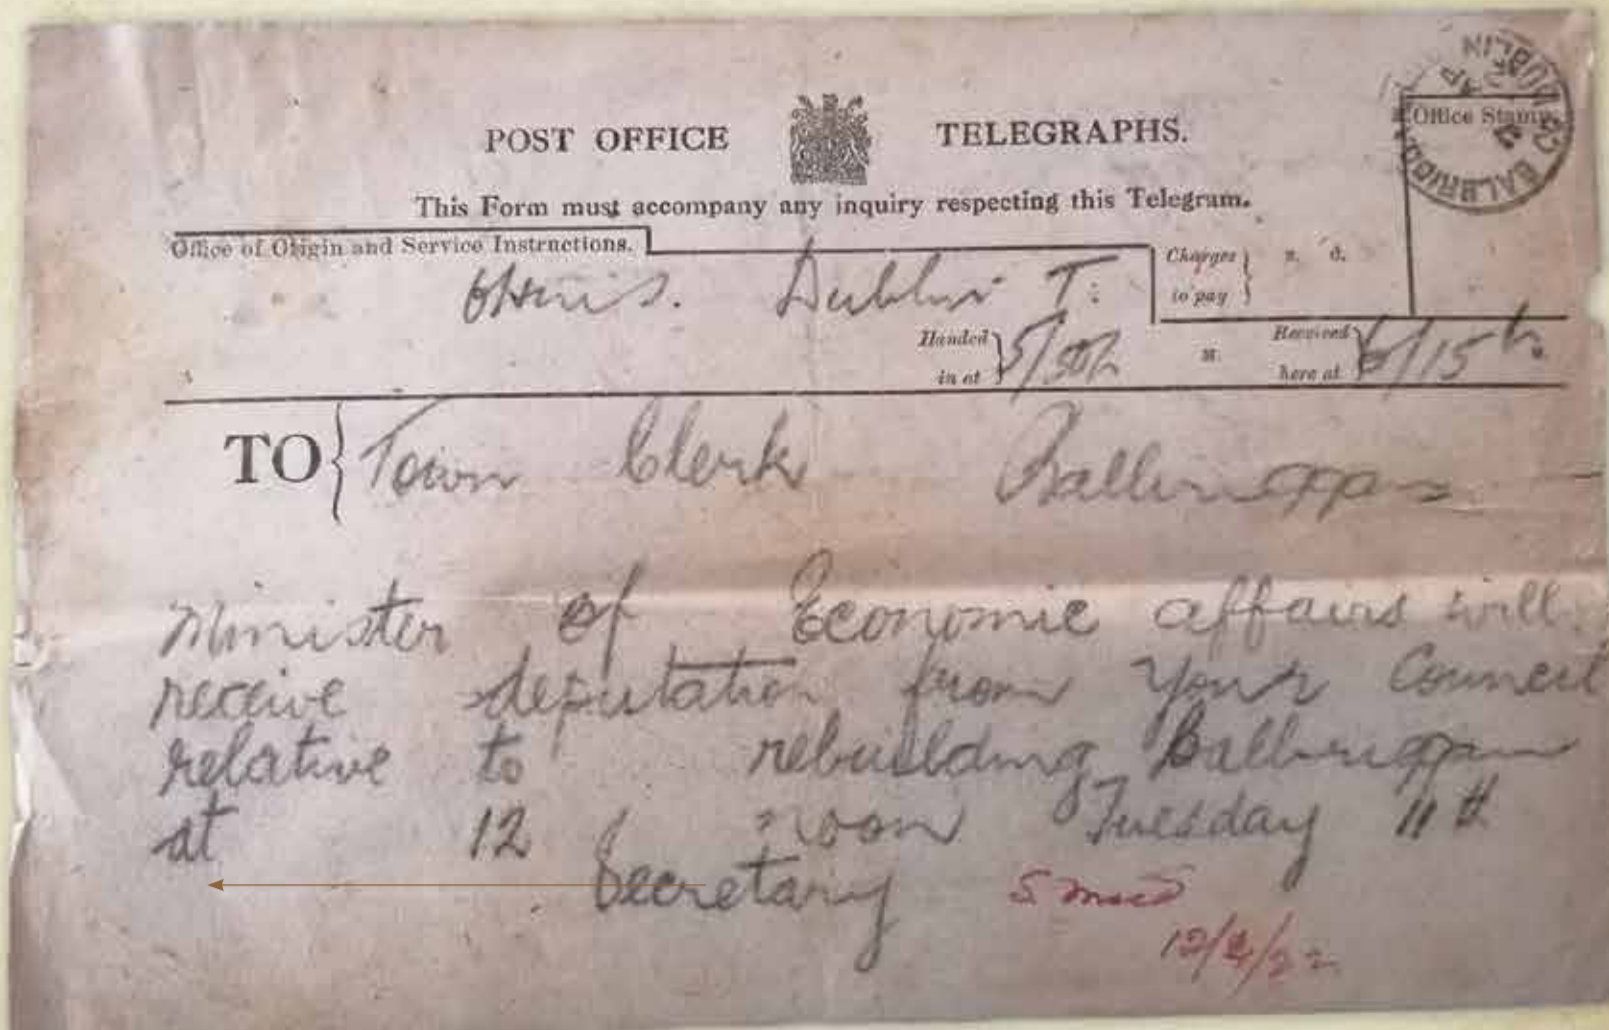 POST OFFICE TELEGRAPHS.
Office Stamp.
BALBRIGG CO DUBLIN
This Form must accompany any inquiry respecting this Telegram.
Office of Origin and Service Instructions.
Charges to pay } s. d.
Dublin T.
Handed in at } 5/50p M. Received here at } 6/15
TO { Town Clerk Balbriggan
Minister of Economic affairs will
receive deputation from your Council
relative to rebuilding Balbriggan
at 12 noon Tuesday 11th
Secretary
12/4/22